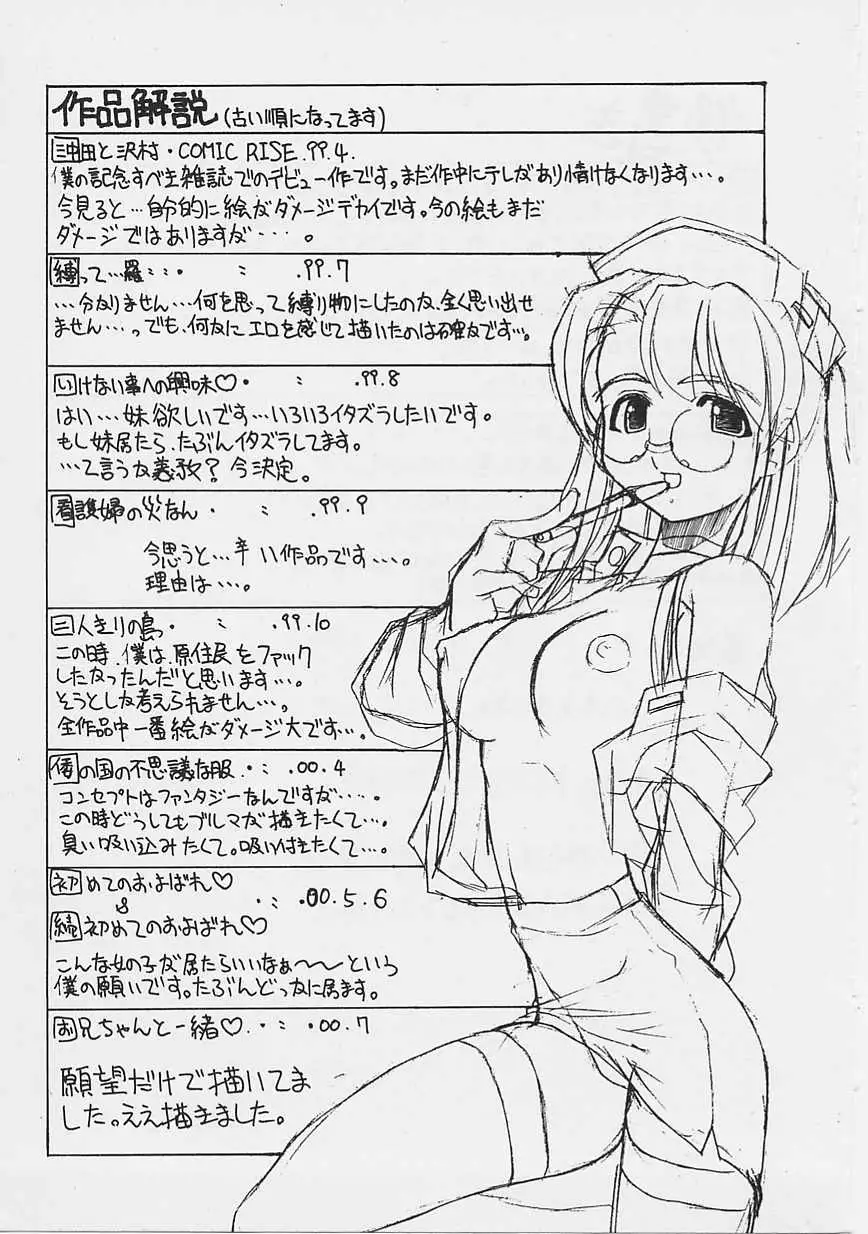 作品解説(古い順になってます)
沖田と沢村・COMIC RISE.99.4.
僕の記念すべき雑誌でのデビュー作です。まだ作中にテレがあり情けなくなります…。
今見ると…自分的に絵がダメージデカイです。今の絵もまだ
ダメージではありますが・・・。
縛って…羅・・・. : .99.7
…分かりません…何を思って縛り物にしたのか、全く思い出せ
ません…。でも、何かにエロを感じて描いたのは確かです…。
いけない事への興味♡・ : .99.8
はい…妹欲しいです…いろいろイタズラしたいです。
もし妹居たら、たぶんイタズラしてます。
…て言うか義務?今決定。
看護婦の災なん・ : .99.9
今思うと…辛い作品です…。
理由は…。
三人きりの島・ : .99.10
この時、僕は原住民をファック
したかったんだと思います…。
そうとしか考えられません…。
全作品中一番絵がダメージ大です…。
倭の国の不思議な服.・: .00.4
コンセプトはファンタジーなんですが・・・。
この時どうしてもブルマが描きたくて…。
臭い吸い込みたくて。吸い付きたくて…。
初めてのおよばれ♡
& .・: .00.5.6
続初めてのおよばれ♡
こんな女の子が居たらいいなぁ〜〜という
僕の願いです。たぶんどっかに居ます。
お兄ちゃんと一緒♡.・: .00.7
願望だけで描いてま
した。ええ描きました。